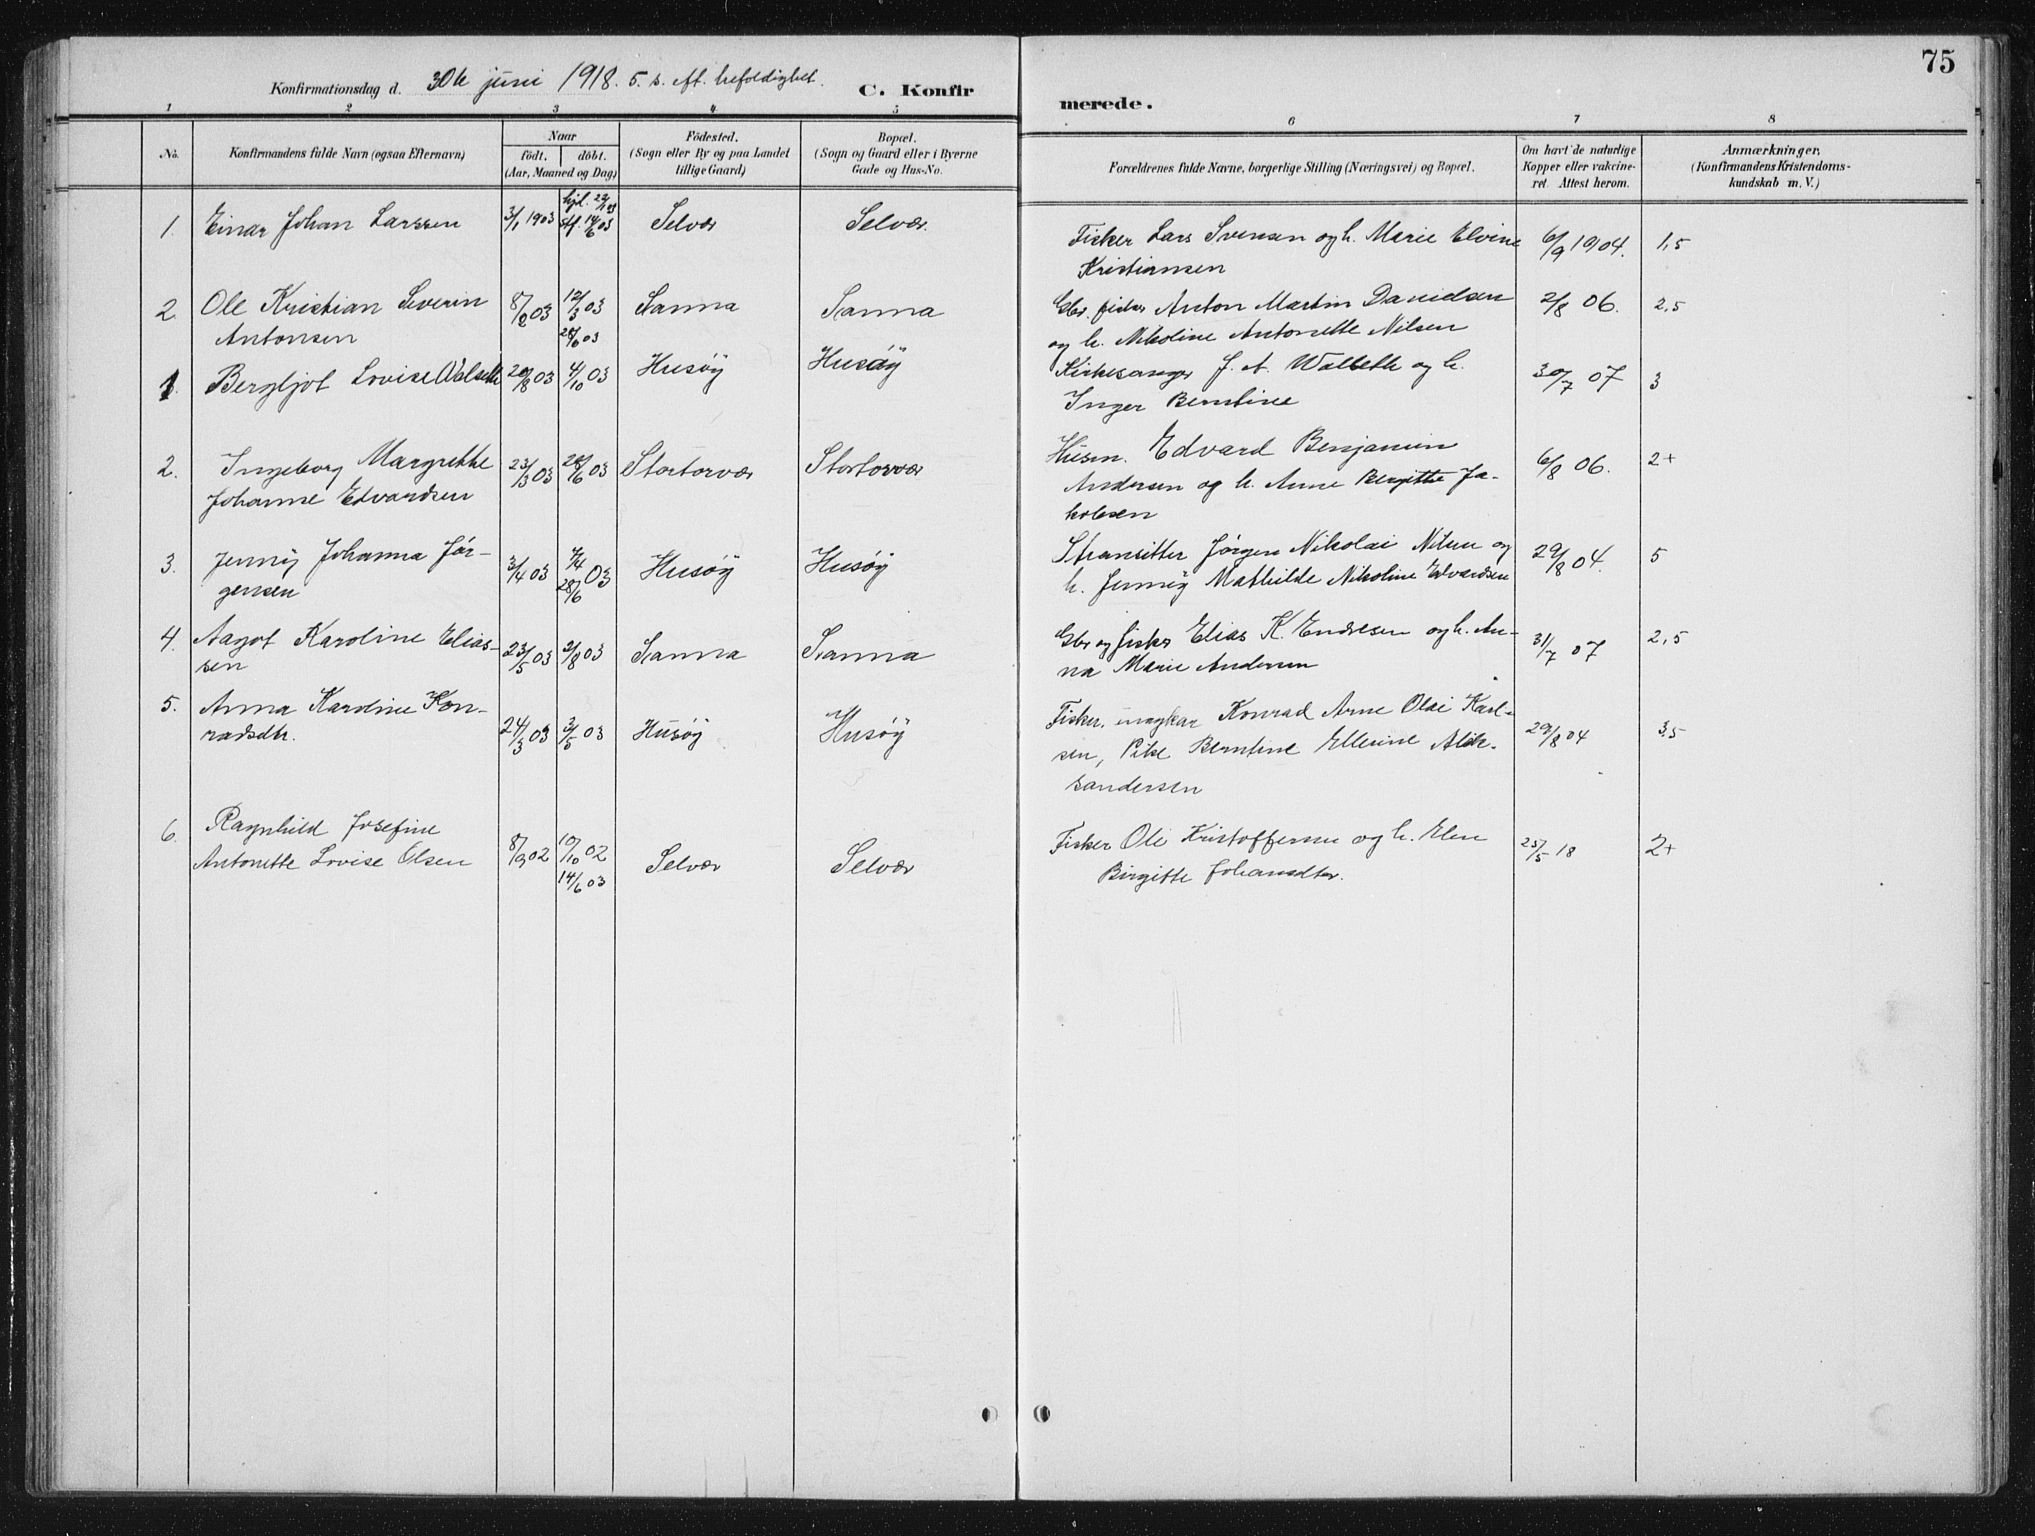 75
Konfirmationsdag d. 30te juni 1918. 5. s. eft. trefoldighet. C. Konfirmerede.
1 2 3 4 5 6 7 8
No.
Konfirmandens fulde Navn (ogsaa Efternavn)
Naar
födt. döbt.
(Aar, Maaned og Dag)
Födested.
(Sogn eller By og paa Landet
tillige Gaard)
Bopæl.
(Sogn og Gaard eller i Byerne
Gade og Hus-No.
Forældrenes fulde Navne, borgerlige Stilling (Næringsvei) og Bopæl.
Om havt de naturlige
Kopper eller vakcine-
ret. Attest herom.
Anmærkninger,
(Konfirmandens Kristendoms-
kundskab m. V.)
1. Einar Johan Larssen 3/1 1903 hjd. 22/1 03 stf. 14/6 03 Selvær Selvær. Fisker Lars Svensen og h. Marie Elvine 6/9 1904. 1,5
Kristiansen
2. Ole Kristian Severin 8/2 03 12/3 03 Sanna Sanna Gbr. fisker Anton Martin Danielsen 2/8 06. 2,5
Antonsen 28/6 03 og h. Nikoline Antonette Nilsen
1. Bergljot Lovise Walseth 20/8 03 4/10 03 Husøy Husøy Kirkesanger J. A. Walseth og h. 30/7 07 3
Inger Berntine
2. Ingeborg Margrethe 23/3 03 28/6 03 Stortorvær Stortorvær Husm. Edvard Benjamin 6/8 06. 2+
Johanne Edvardsen Andersen og h. Anne Bergitte Ja-
kobsen
3. Jenny Johanna Jør- 3/4 03 7/4 28/6 03 Husøy Husøy Strandsitter Jørgen Nikolai Nilsen og 29/8 04. 5
gensen h. Jenny Mathilde Nikoline Edvardsen
4. Aagot Karoline Elias- 23/5 03 2/8 03 Sanna Sanna Gbr og fisker Elias K. Endresen og h. An- 31/7 07 2,5
sen na Marie Andersen
5. Anna Karoline Kon- 24/3 03 3/5 03 Husøy Husøy Fisker, ungkar Konrad Arne Olai Karl- 29/8 04 3,5
radsdtr. sen, Pike Berntine Ellerine Alek-
sandersen
6. Ragnhild Josefine 8/9 02 10/10 02 Selvær Selvær Fisker Ole Kristoffersen og h. Elen 25/5 18 2+
Antonette Lovise Olsen 14/6 03 Birgitte Johansdter.